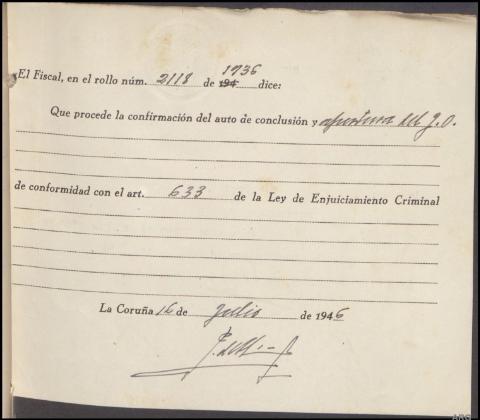 1936
El Fiscal, en el rollo núm. 2118 de 194 dice:
Que procede la confirmación del auto de conclusión y apertura del J.O.
de conformidad con el art. 633 de la Ley de Enjuiciamiento Criminal
La Coruña 16 de Julio de 1946
ARG